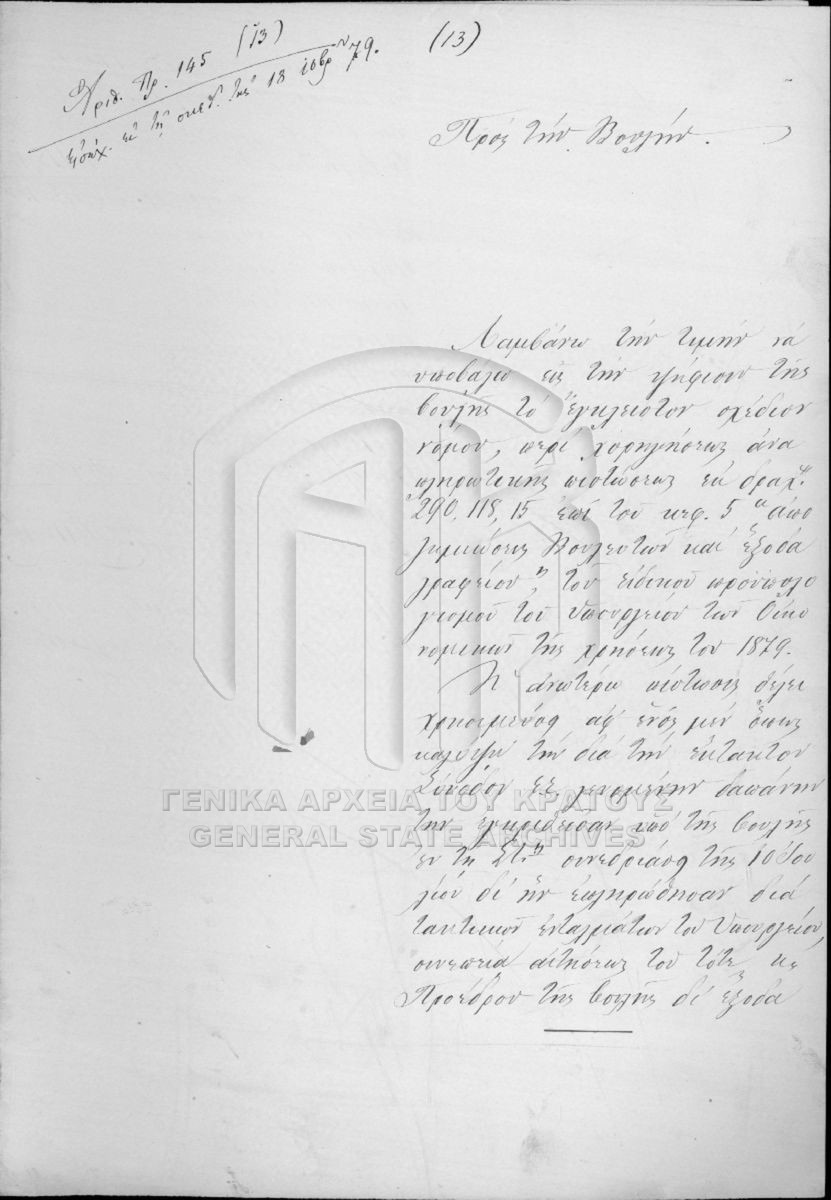 Αριθ. Πρ. 145 (13)
εἰσήχ. ἐν τῇ συνεδ. τῆς 13 9βρ 79.
(13)
Πρὸς τὴν Βουλήν.
Λαμβάνω τὴν τιμὴν νὰ
υποβάλω εἰς τὴν ψήφισιν τῆς
Βουλῆς τὸ ἔγκλειστον σχέδιον
νόμου, περὶ χορηγήσεως ἀνα
πληρωτικῆς πιστώσεως ἐκ δραχ.
290,118,15 ἐπὶ τοῦ κεφ. 5 "ἀπο
ζημιώσεις Βουλευτῶν καὶ ἔξοδα
γραφείου", τοῦ εἰδικοῦ προϋπολο
γισμοῦ τοῦ Υπουργείου τῶν Οἰκο
νομικῶν τῆς χρήσεως τοῦ 1879.
Ἡ ἀνωτέρω πίστωσις θέλει
χρησιμεύσει ἀφ' ἑνὸς μὲν ὅπως
καλύψῃ τὴν διὰ τὴν ἔκτακτον
Σύνοδον γενομένην δαπάνην
τὴν ἐγκριθεῖσαν ὑπὸ τῆς Βουλῆς
ἐν τῇ συνεδριάσει τῆς 10 Ἰου
λίου δι' ἣν ἐπληρώθησαν διὰ
τακτικῶν ἐνταλμάτων τοῦ Υπουργείου,
συνεπείᾳ αἰτήσεως τοῦ τότε κ.
Προέδρου τῆς Βουλῆς δι' ἔξοδα
ΓΕΝΙΚΑ ΑΡΧΕΙΑ ΤΟΥ ΚΡΑΤΟΥΣ
GENERAL STATE ARCHIVES